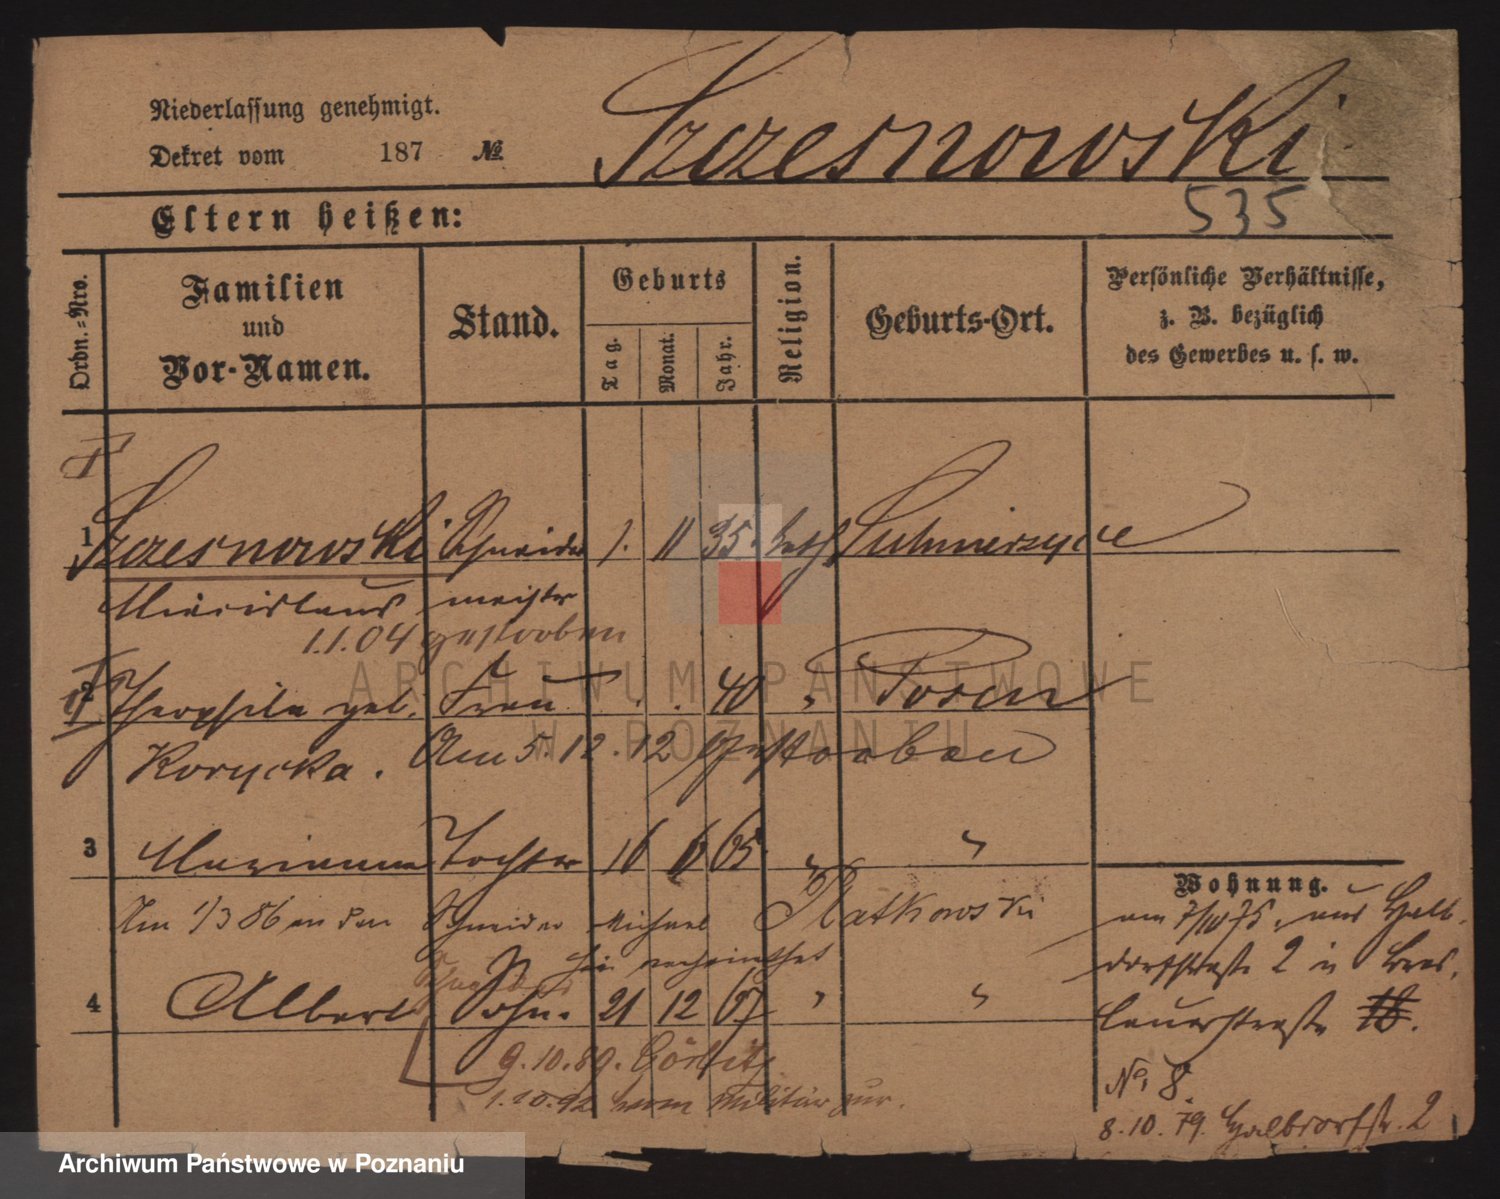 Niederlassung genehmigt.
Dekret vom 187 №
Szczesnowski
535
Eltern heißen:
Ordn.=Nro.
Familien und Vor-Namen.
Stand.
Geburts
Tag.
Monat.
Jahr.
Religion.
Geburts-Ort.
Persönliche Verhältnisse,
z. B. bezüglich
des Gewerbes u. s. w.
1 Szczesnowski Schneider 1. 11 35. kath Sulmierzyce
Miecislaus meister
1.1.04 gestorben
2 Theophila geb. Frau . . 40 " Posen
Korycka. Am 5.12.12 gestorben
3 Marianna Tochter 16 6 65 " "
Am 1/3 86 an den Schneider Michael Ratkowski
hier verheirathet
4 Albert Sohn. 21 12 67 " "
9.10.89. Görlitz
1.10.92 vom Militär zur.
Wohnung.
am 7/10 75. aus Halb-
dorfstraße 2 in Bres-
lauerstraße 18.
No. 8.
8.10.79. Halbdorfstr. 2
ARCHIWUM PAŃSTWOWE
W POZNANIU
Archiwum Państwowe w Poznaniu